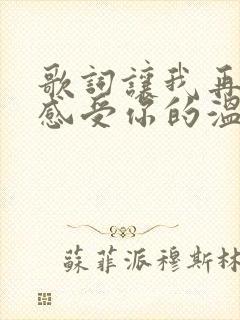 歌詞讓我再
感受你的溫
蘇菲派穆斯林